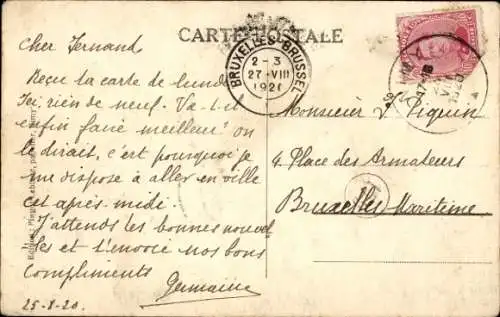 CARTE POSTALE
BRUXELLES - BRUSSEL
2-3
27-VIII
1921
Cher Fernand
Reçu la carte de lundi
Ici, rien de neuf. Va-t-il
enfin faire meilleur? on
le dirait, c'est pourquoi je
me dispose à aller en ville
cet après-midi.
J'attends les bonnes nouvel
les et t'envoie nos bons
compliments
Germaine
25-8-20.
Monsieur F Piquin
4. Place des Armateurs
Bruxelles Maritime